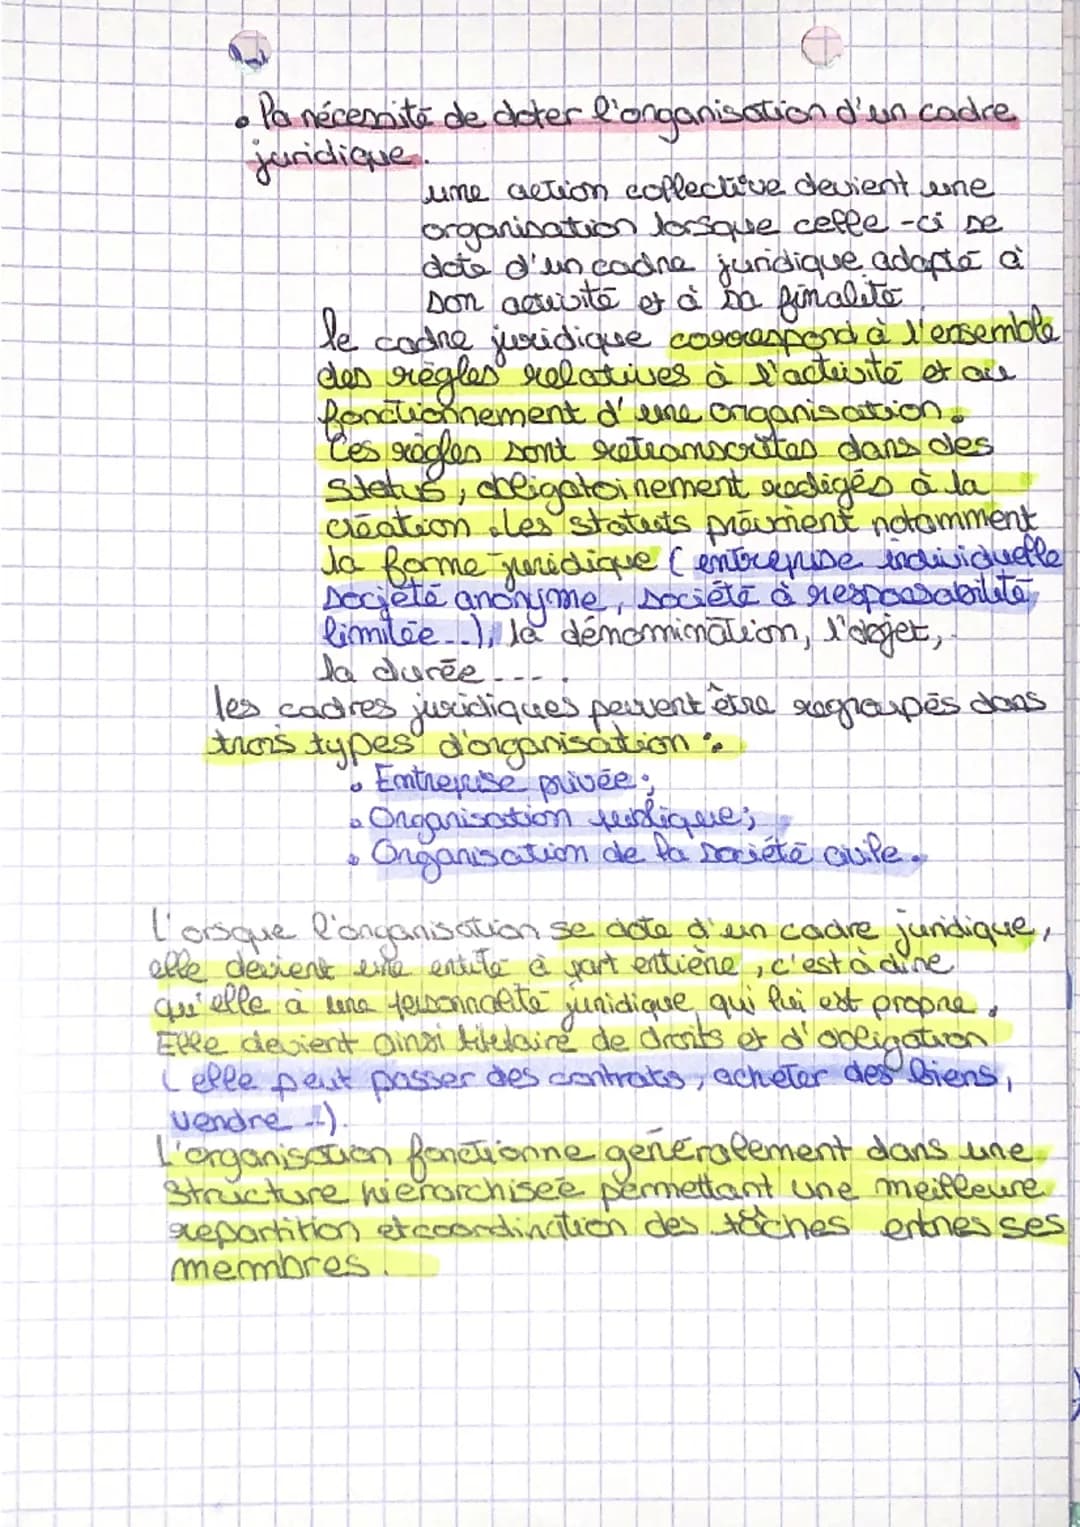 • la nécessité de doter l'organisation d'un cadre
juridique.
une action collective devient une
organisation lorsque celle-ci se
dote d'un cadre juridique adapté à
son activité et à sa finalité.
le cadre juridique correspond à l'ensemble
des règles relatives à l'activité et au
fonctionnement d'une organisation.
Ces règles sont retranscrites dans des
status, obligatoirement rédigés à la
création. les statuts prévoient notamment
la forme juridique (entreprise individuelle
société anonyme, société à responsabilité
limitée...), la dénomination, l'objet,
la durée....
les cadres juridiques peuvent être regroupés dans
trois types d'organisation :
• Entreprise privée ;
• Organisation publique ;
• Organisation de la société civile.
L'orsque l'organisation se dote d'un cadre juridique,
elle devient une entité à part entière, c'est à dire
qu'elle à une personnalité juridique qui lui est propre.
Elle devient ainsi titulaire de droits et d'obligation
(elle peut passer des contrats, acheter des biens,
vendre ...).
L'organisation fonctionne généralement dans une
structure hierarchisée permettant une meilleure
repartition et coordination des tâches entres ses
membres.